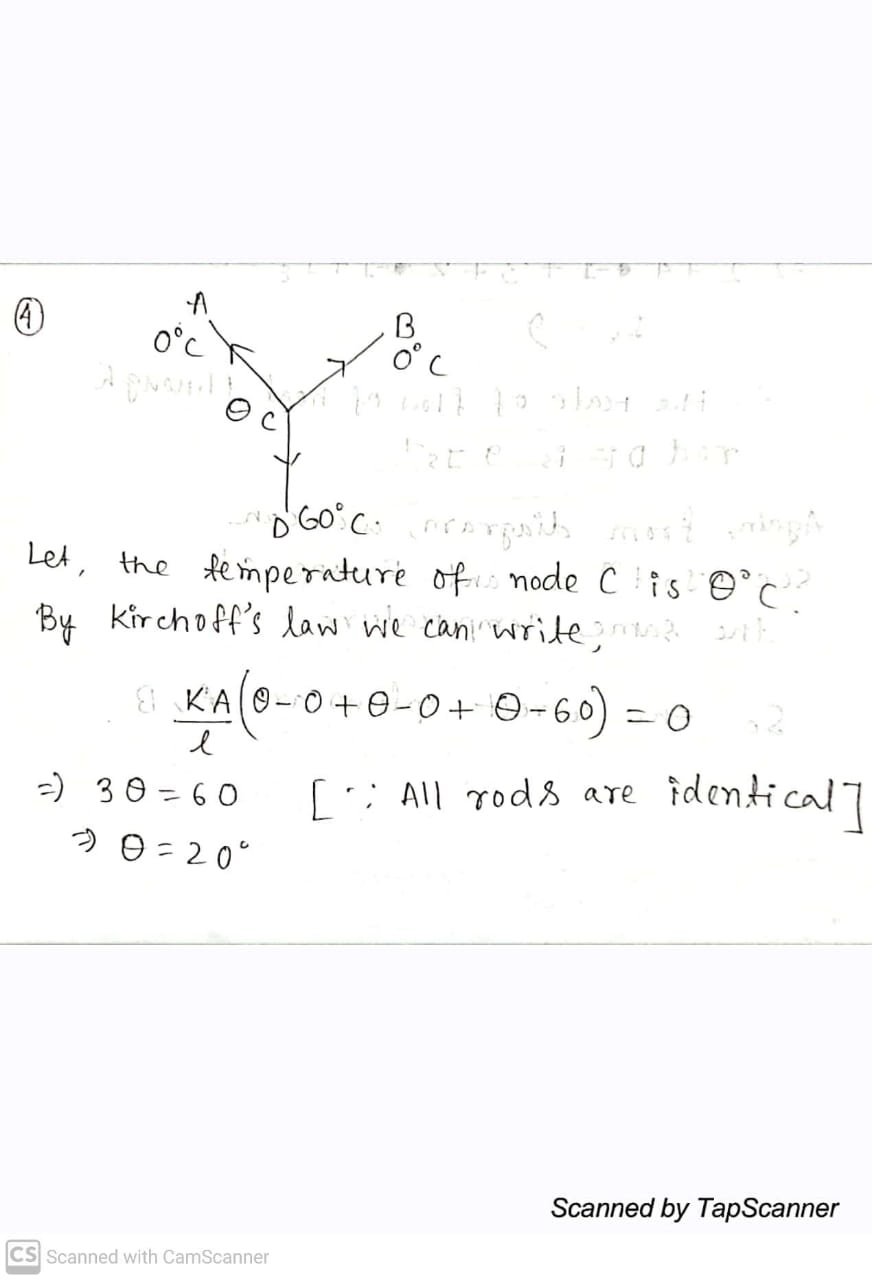 ④
A
0°C
B
0°C
θ C
D 60°C.
Let, the temperature of node C is θ°C.
By Kirchoff's law we can write,
KA/l (θ-0+θ-0+θ-60) = 0
⇒ 3θ = 60 [∵ All rods are identical]
⇒ θ = 20°
Scanned by TapScanner
CS Scanned with CamScanner